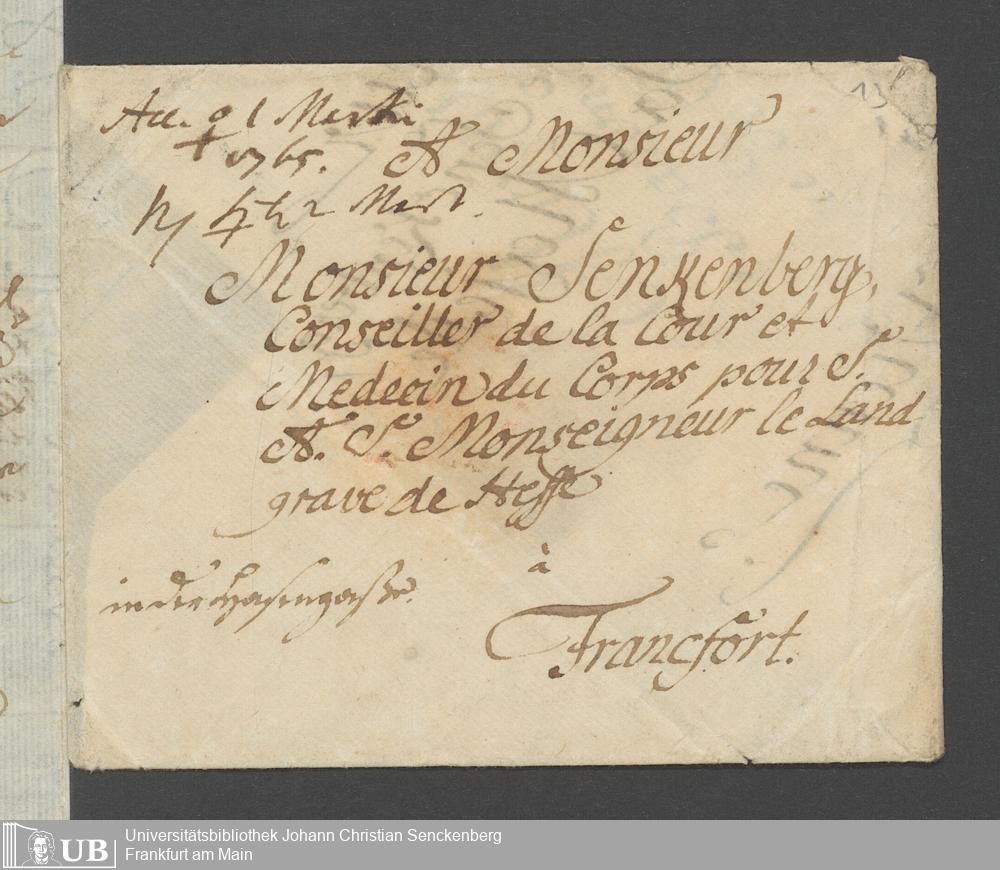 13
Acc. ♀ 1 Martii
1765.
A Monsieur
♄ 2 Mart.
Monsieur Senkenberg,
Conseiller de la Cour et
Medecin du Corps pour S.
A. S. Monseigneur le Land
grave de Hesse
à
in der Hasengasse.
Francfort.
UB
Universitätsbibliothek Johann Christian Senckenberg
Frankfurt am Main